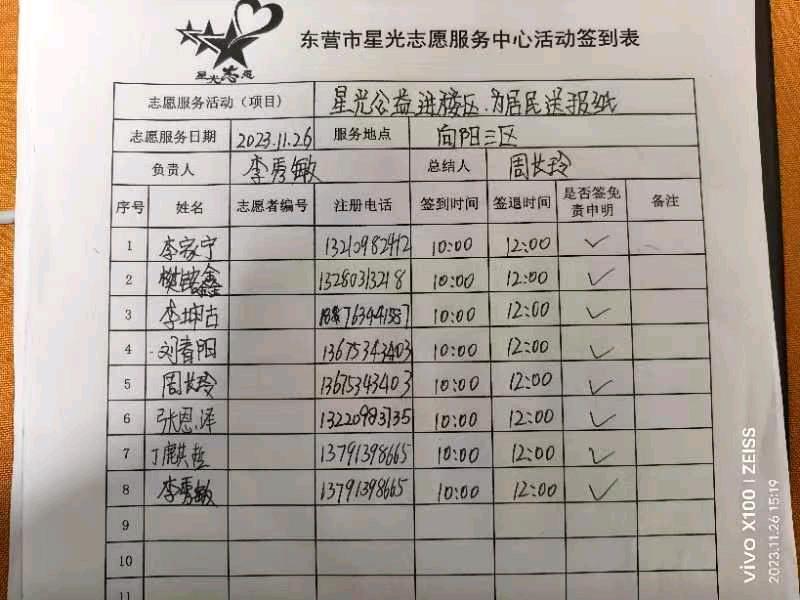 星光志愿
东营市星光志愿服务中心活动签到表
志愿服务活动（项目） 星光公益进楼区.为居民送报纸
志愿服务日期 2023.11.26 服务地点 向阳三区
负责人 李秀敏 总结人 周长玲
序号 姓名 志愿者编号 注册电话 签到时间 签退时间 是否签免责申明 备注
1 李家宁 13210982412 10:00 12:00 ✓
2 樊铭鑫 13280313218 10:00 12:00 ✓
3 李坤古 10:00 12:00 ✓
4 刘青阳 13675343403 10:00 12:00 ✓
5 周长玲 13675343403 10:00 12:00 ✓
6 张恩泽 10:00 12:00 ✓
7 丁麒哲 13791398665 10:00 12:00 ✓
8 李秀敏 13791398665 10:00 12:00 ✓
9
10
11
vivo X100 | ZEISS
2023.11.26 15:19